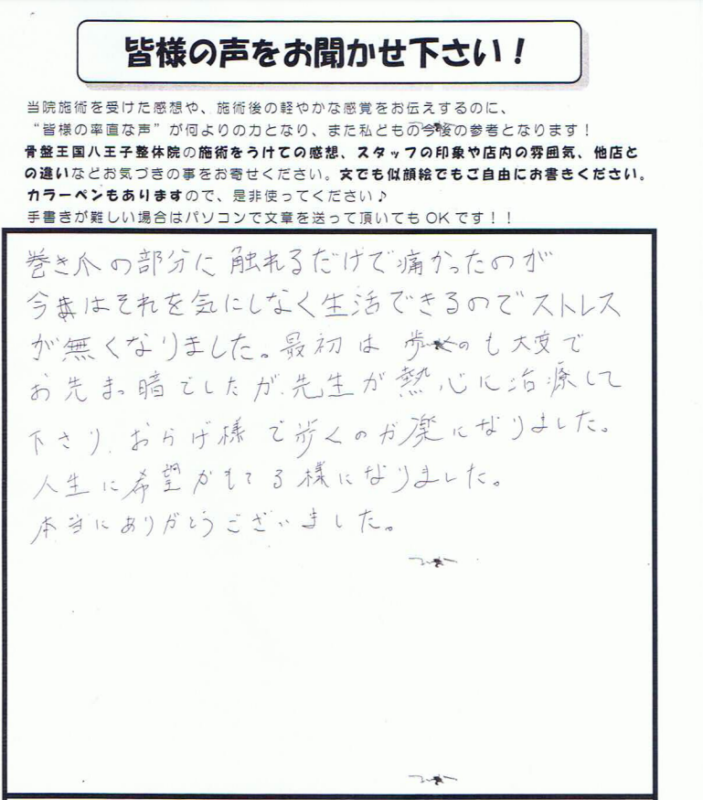 皆様の声をお聞かせ下さい！
当院施術を受けた感想や、施術後の軽やかな感覚をお伝えするのに、
“皆様の率直な声”が何よりの力となり、また私どもの今後の参考となります！
骨盤王国八王子整体院の施術をうけての感想、スタッフの印象や店内の雰囲気、他店と
の違いなどお気づきの事をお寄せください。文でも似顔絵でもご自由にお書きください。
カラーペンもありますので、是非使ってください♪
手書きが難しい場合はパソコンで文章を送って頂いてもOKです！！
巻き爪の部分に触れるだけで痛かったのが
今はそれを気にしなく生活できるのでストレス
が無くなりました。最初は歩くのも大変で
お先まっ暗でしたが、先生が熱心に治療して
下さり、おかげ様で歩くのが楽になりました。
人生に希望がもてる様になりました。
本当にありがとうございました。